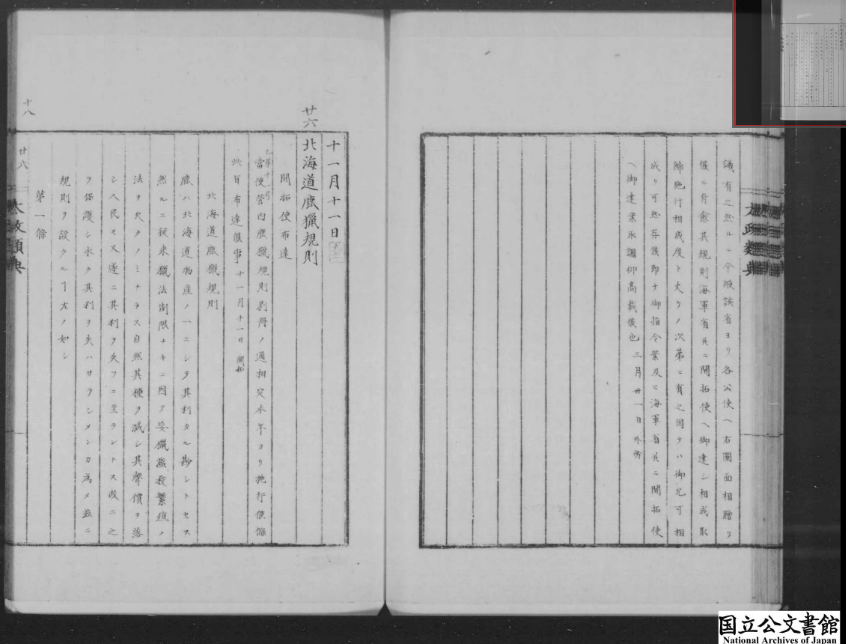 議有之然ル上ハ今般該省ヨリ各公使ヘ右圖面相贈リ
候ニ付愈其規則海軍省並ニ開拓使ヘ御達シ相成取
締施行相成度ト夫々ノ次第ニ有之因テハ御允可相
成リ可然存候即チ御指令案及ヒ海軍省並ニ開拓使
ヘ御達案取調仰高裁候也 三月廿一日外務
太政類典
十一月十一日
廿六 北海道鹿獵規則
開拓使布達
當使管内鹿獵規則別冊ノ通相定本年ヨリ施行候條
此旨布達候事 十一月十一日 開拓
北海道鹿獵規則
鹿ハ北海道物産ノ一ニシテ其利タル尠シトセス
然ルニ從來獵法制限ナキニ因テ妄獵濫殺繁殖ノ
法ヲ失フノミナラス自然其種ヲ減シ其聲價ヲ落
シ人民モ又遂ニ其利ヲ失フニ至ラントス故ニ之
ヲ保護シ永ク其利ヲ失ハサラシメンカ爲メ茲ニ
規則ヲ設クル丁左ノ如シ
第一條
太政類典
廿六
十八
国立公文書館
National Archives of Japan